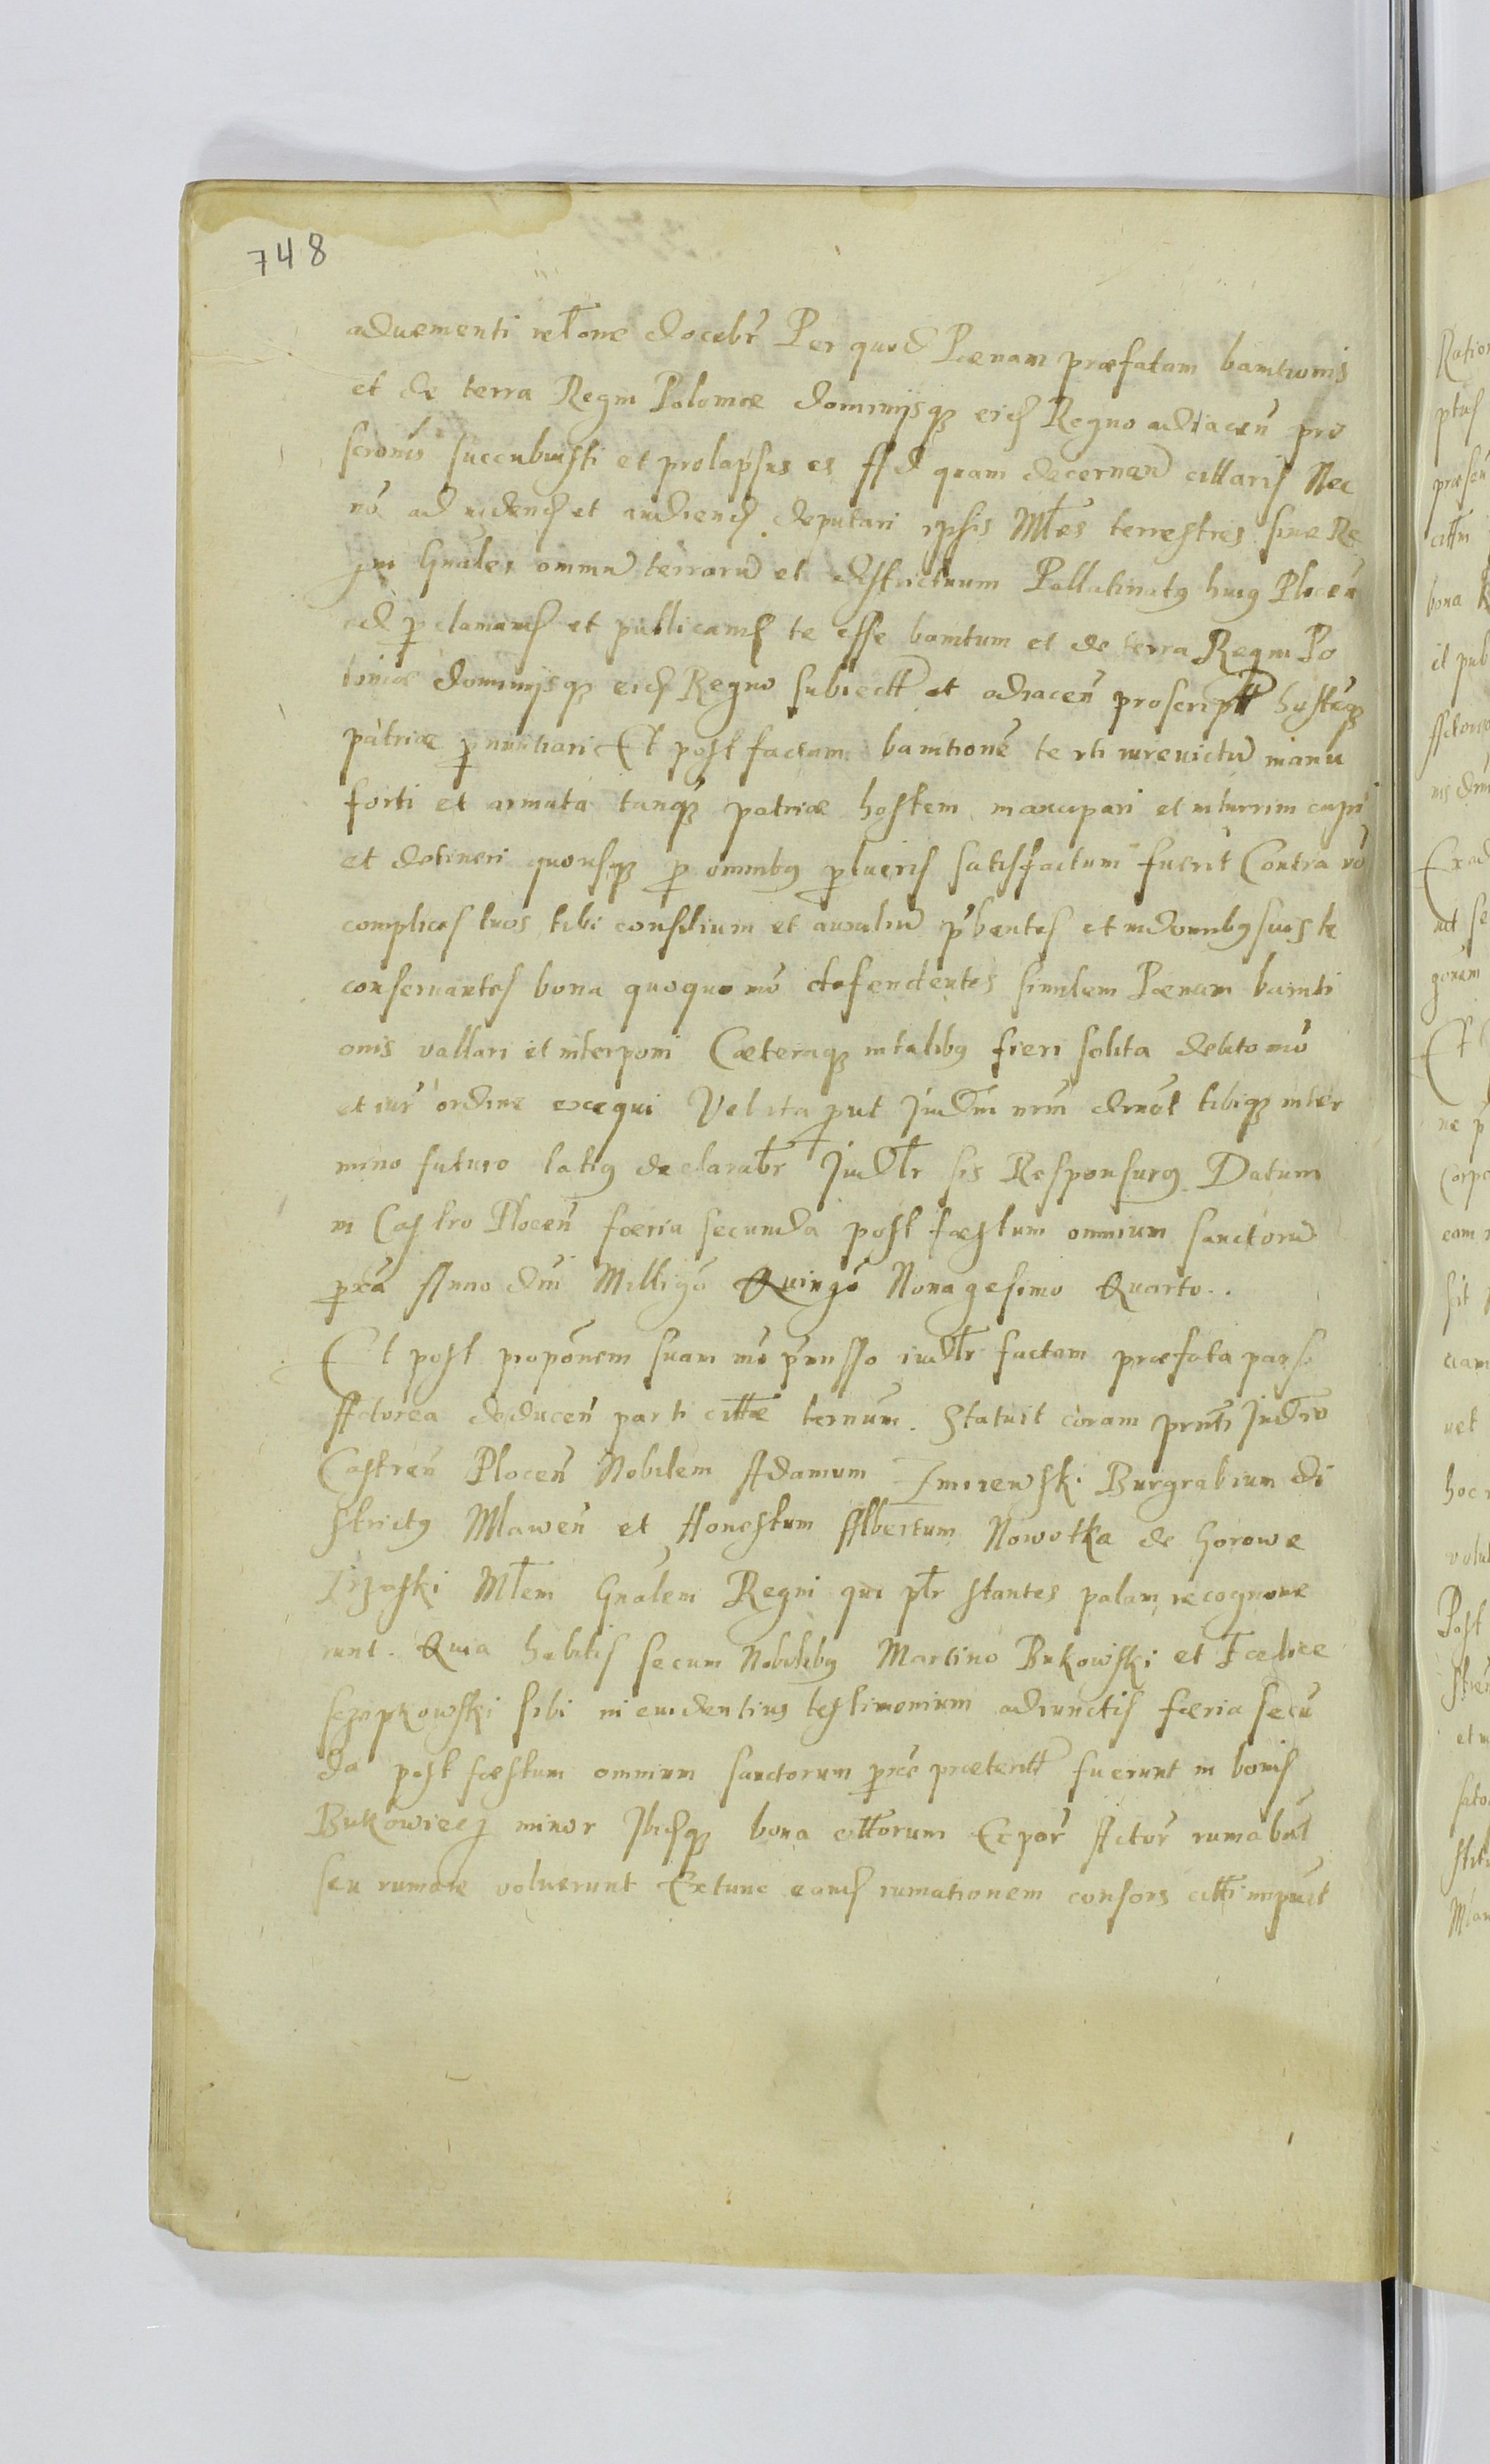 748
aduementi relone docebr Per quod Pœnam præfatam banitionis
et de terra Regni Poloniæ dominijsq eid Regno adiacen pro
scronis succubuisti et prolapsus es Ad quam decernen cittaris Nec
no ad viden et audien deputari ipsis Mles terrestres siue Re
gni Gnales omniu terraru et districtuum Pallatinatq huiq Plocen
ad pclaman et publican te esse banitum et de terra Regni Po
loniæ dominijsq eid Regno subiectt et adiacen proscriptt hosteq
patriæ pnuntiari Et post factam banitione te vti iureuictu manu
forti et armata tanq patriæ hostem mancipari et in turrim capi
et detineri quousq p omnibq plucris satisfactum fuerit Contra vo
complices tuos tibi consilium et auxiliu pbentes et in domibq suis te
conseruantes bona quoquo mo defendentes similem Pœnam baniti
onis vallari et interponi Cæteraq in talibq fieri solita debito mo
et iur ordine exequi Vel ita put Judm nrm dmol tibiq in ter
mino futuro latiq declarabr Judlr sis Responsurq Datum
in Castro Plocen fœria secunda post fæstum omnium sanctoru
pxa Anno dni Milligo Quingo Nonagesimo Quarto..
Et post proponem suam mo pmisso iudlr factam præfata pars
Actorea deducen parti cittæ ternum. Statuit coram prnti Judio
Castren Plocen Nobilem Adamum Zmiiewski Burgrabium di
strictq Mlawen et Honestum Albertum Nowotka de Gorowe
Trzaski Mlem Gnalem Regni qui plr stantes palam recognoue
runt. Quia habitis secum Nobilibq Martino Bukowski et Fœlice
Szapkowski sibi in euidentius testimonium adiunctis fœria secu
da post fœstum omnium sanctorum pxe præteritt fuerunt in bonis
Bukowiecz minor Ibidq bona cittorum Expar Actor rumabat
seu rumare voluerunt Extunc eand rumationem consors citti inipuit